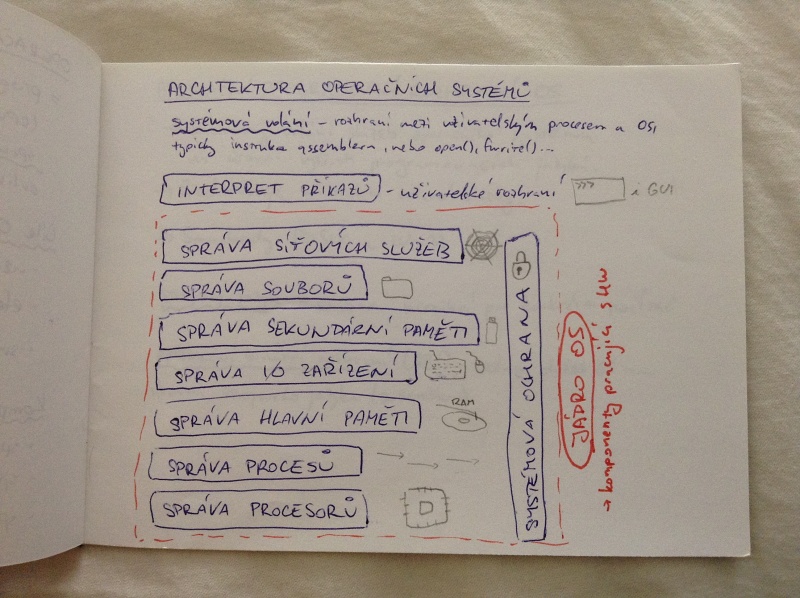 ARCHITEKTURA OPERAČNÍCH SYSTÉMŮ
systémová volání – rozhraní mezi uživatelským procesem a OS,
typicky instrukce assembleru, nebo open(), fwrite()...
INTERPRET PŘÍKAZŮ – uživatelské rozhraní >>> i GUI
SPRÁVA SÍŤOVÝCH SLUŽEB
SPRÁVA SOUBORŮ
SPRÁVA SEKUNDÁRNÍ PAMĚTI
SPRÁVA I/O ZAŘÍZENÍ
SPRÁVA HLAVNÍ PAMĚTI RAM
SPRÁVA PROCESŮ
SPRÁVA PROCESORŮ
SYSTÉMOVÁ OCHRANA
JÁDRO OS
→ komponenty pracující s HW